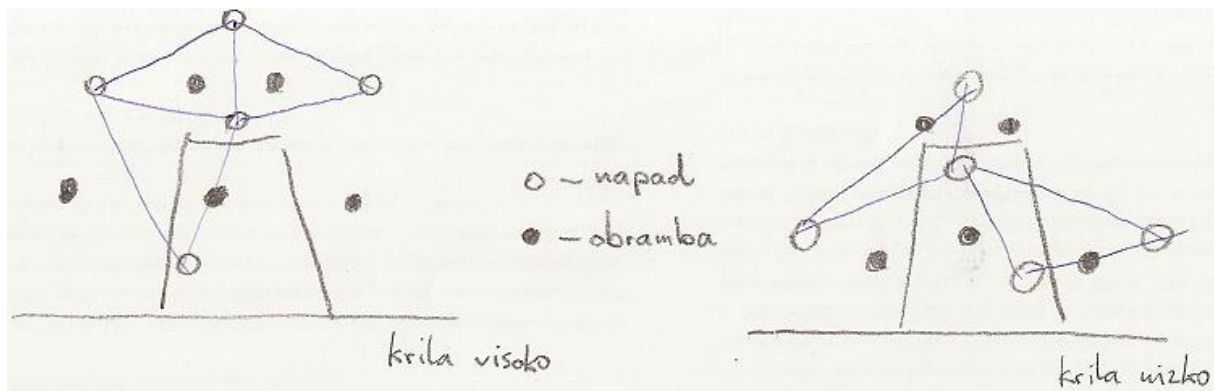 ○ – napad
● – obramba
krila visoko
krila nizko